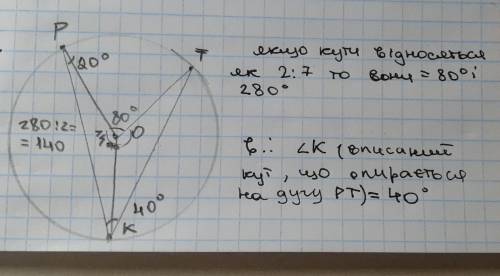 P
20°
T
80°
O
280:2=
= 140
40°
K
якщо кути відносяться
як 2:7 то вони = 80° і
280°
в.: ∠K (вписаний
кут, що опирається
на дугу PT) = 40°